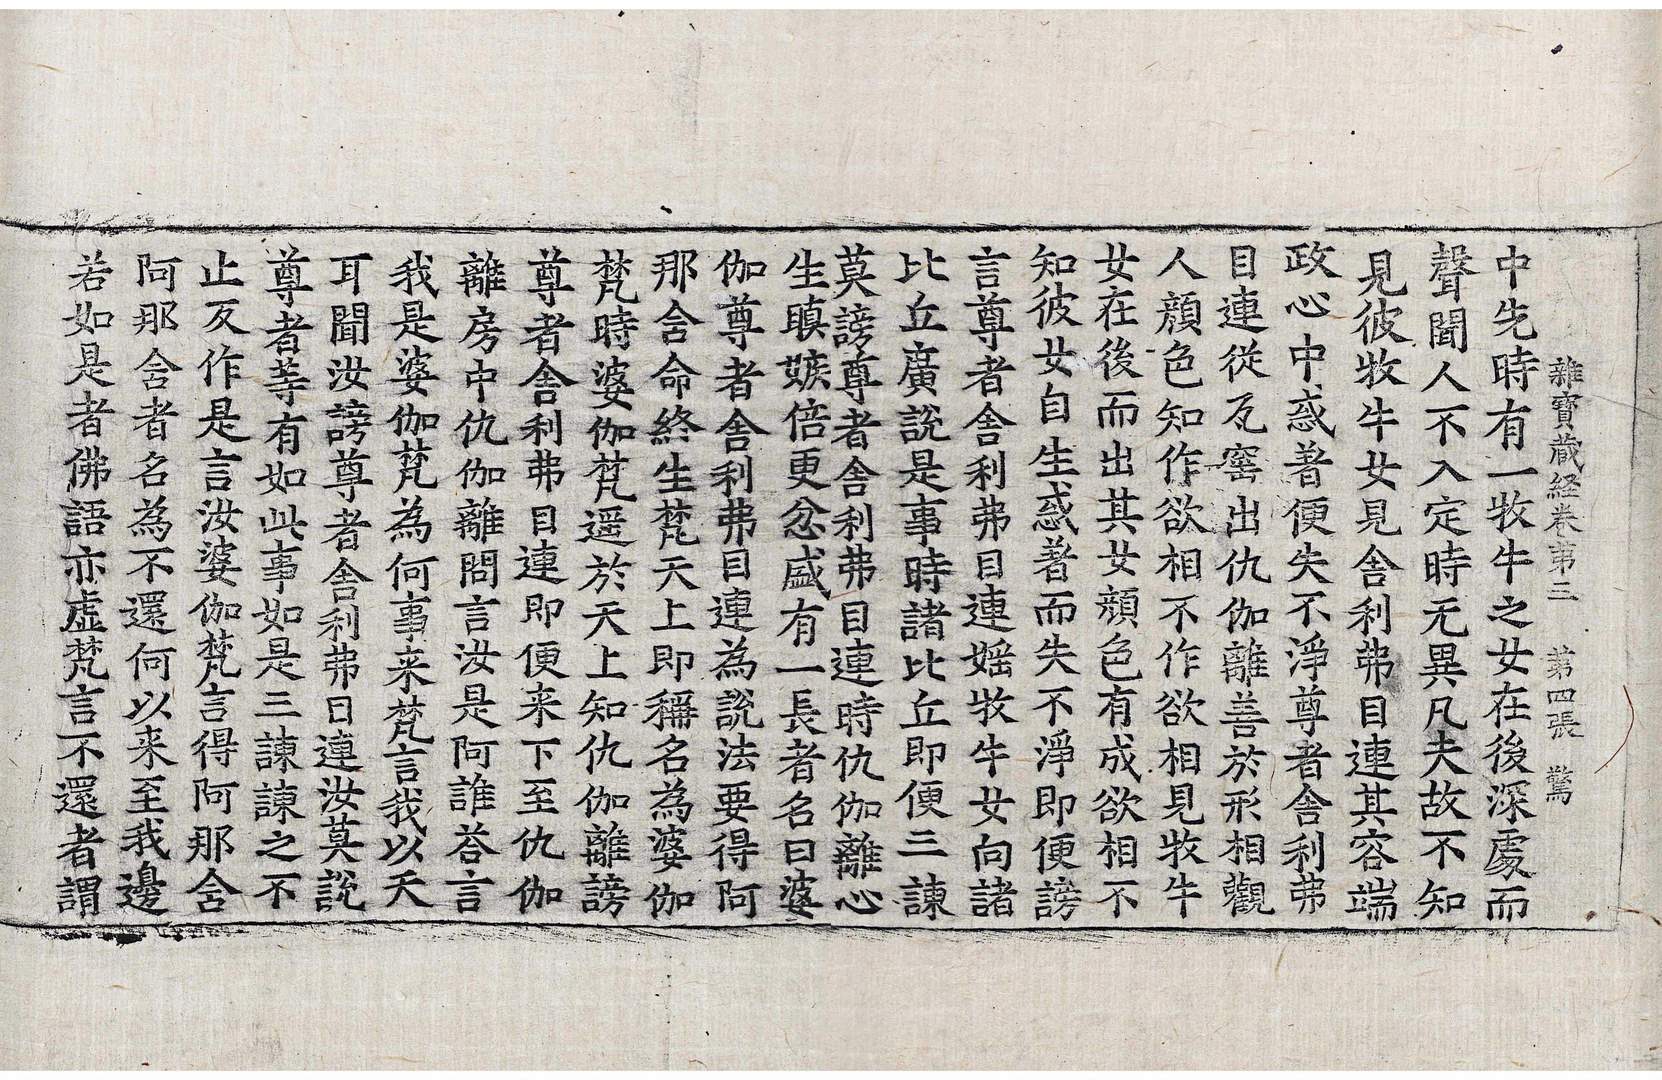 雜寶蔵経卷苐三　苐四張　驚
中先時有一牧牛之女在後深處而
聲聞人不入定時无異凡夫故不知
見彼牧牛女見舍利弗目連其容端
政心中惑著便失不淨尊者舍利弗
目連從瓦窑出仇伽離善於形相觀
人顏色知作欲相不作欲相見牧牛
女在後而出其女顏色有成欲相不
知彼女自生惑著而失不淨即便謗
言尊者舍利弗目連婬牧牛女向諸
比丘廣說是事時諸比丘即便三諫
莫謗尊者舍利弗目連時仇伽離心
生瞋嫉倍更忿盛有一長者名曰婆
伽尊者舍利弗目連為說法要得阿
那舍命終生梵天上即稱名為婆伽
梵時婆伽梵遥於天上知仇伽離謗
尊者舍利弗目連即便来下至仇伽
離房中仇伽離問言汝是阿誰荅言
我是婆伽梵為何事来梵言我以天
耳聞汝謗尊者舍利弗目連汝莫說
尊者䓁有如此事如是三諫諫之不
止反作是言汝婆伽梵言得阿那舍
阿那舍者名為不還何以来至我邊
若如是者佛語亦虛梵言不還者謂